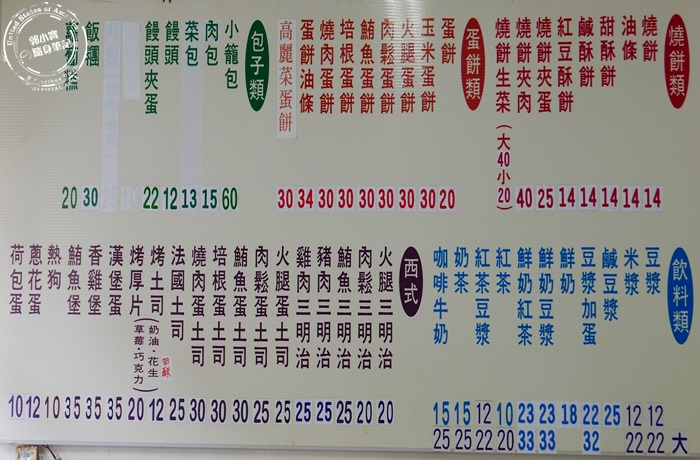 燒餅類
燒餅 14
油條 14
甜酥餅 14
鹹酥餅 14
紅豆酥餅 14
燒餅夾蛋 25
燒餅夾肉 40
燒餅生菜(大40小20)
蛋餅類
蛋餅 20
玉米蛋餅 30
火腿蛋餅 30
肉鬆蛋餅 30
鮪魚蛋餅 30
培根蛋餅 30
燒肉蛋餅 30
蛋餅油條 34
高麗菜蛋餅 30
包子類
小籠包 60
肉包 15
菜包 13
饅頭 12
饅頭夾蛋 22
10
25
飯糰 30
糕 20
飲料類
大
豆漿 12 22
米漿 12 22
鹹豆漿 25
豆漿加蛋 22 32
鮮奶 18
鮮奶豆漿 23 33
鮮奶紅茶 23 33
紅茶 10 20
紅茶豆漿 12 22
奶茶 15 25
咖啡牛奶 15 25
西式
火腿三明治 20
肉鬆三明治 20
鮪魚三明治 25
豬肉三明治 25
雞肉三明治 25
火腿蛋土司 25
肉鬆蛋土司 25
鮪魚蛋土司 30
培根蛋土司 30
燒肉蛋土司 30
法國土司 25
烤土司 12
烤厚片 20
(奶油·花生
草莓·巧克力)
奶酥
漢堡蛋 35
香雞堡 35
鮪魚堡 35
熱狗 10
蔥花蛋 12
荷包蛋 10
隨身筆記